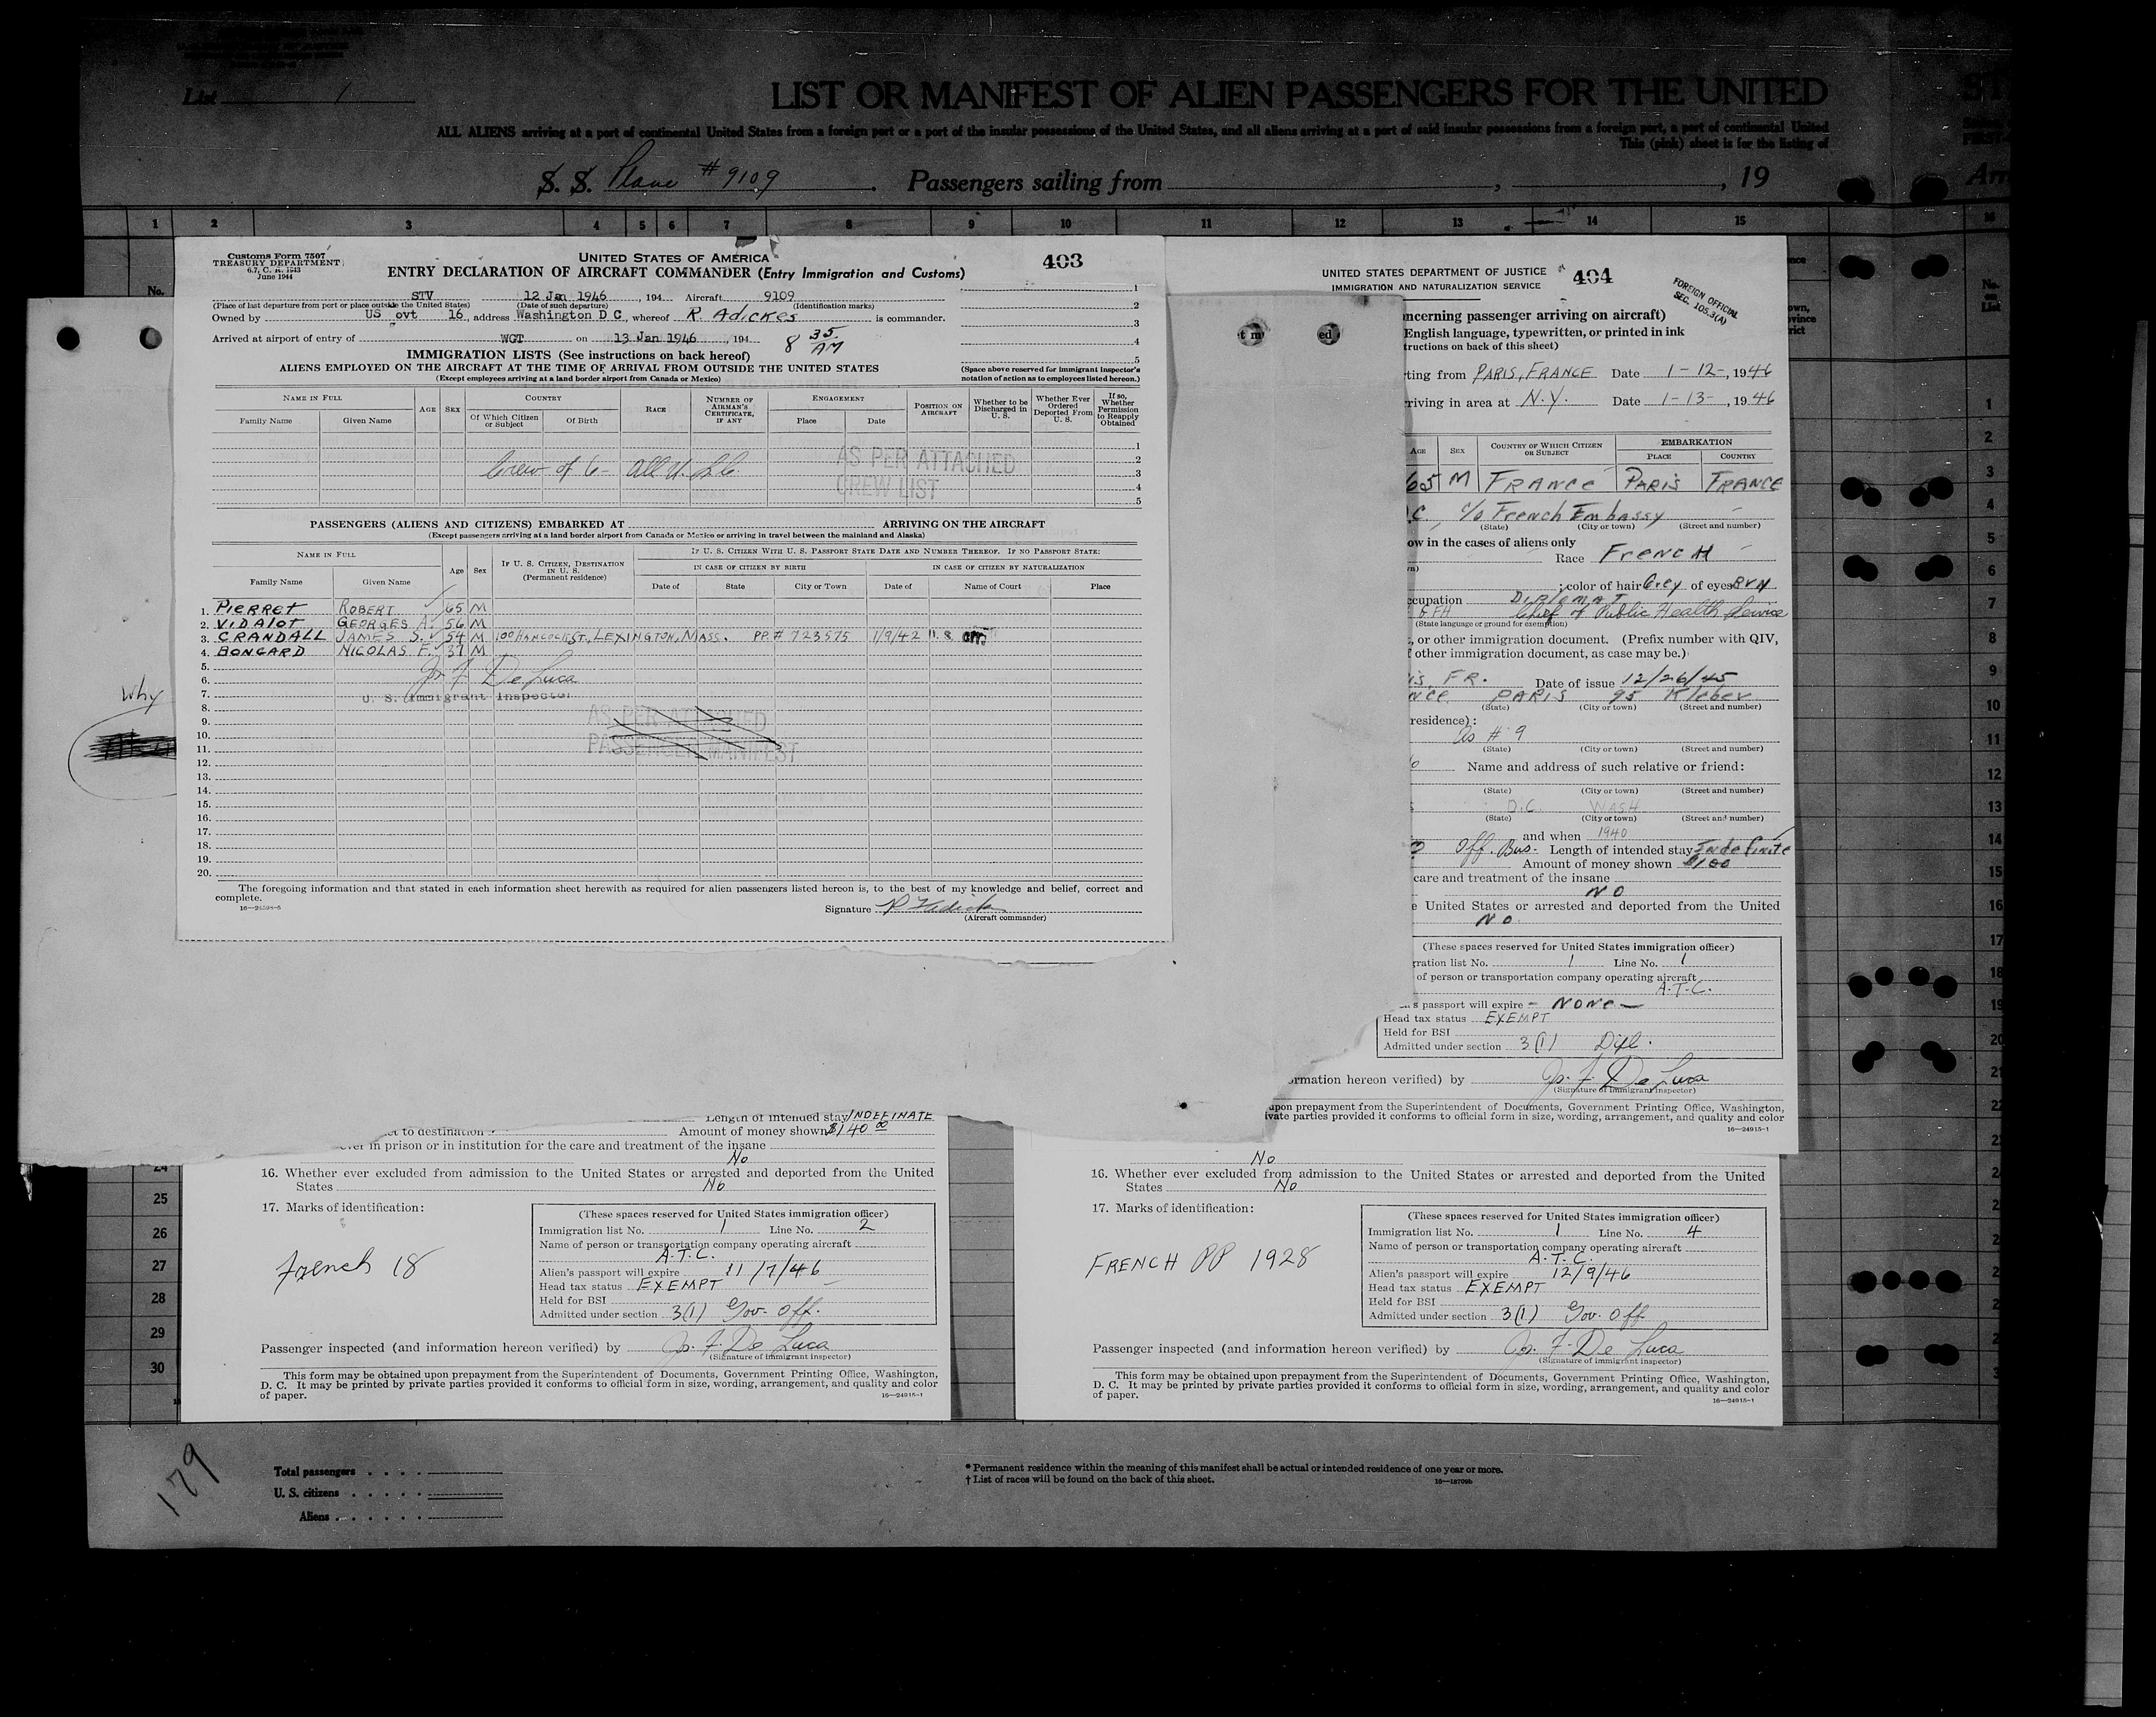 List 1
LIST OR MANIFEST OF ALIEN PASSENGERS FOR THE UNITED
ALL ALIENS arriving at a port of continental United States from a foreign port or a port of the insular possessions of the United States, and all aliens arriving at a port of said insular possessions from a foreign port, a port of continental United
This (pink) sheet is for the listing of
S. S. Plane # 9109 . Passengers sailing from , , 19
1 2 3 4 5 6 7 8 9 10 11 12 13 14 15
No.
Customs Form 7507
TREASURY DEPARTMENT
6.7, C. R. 1943
June 1944
UNITED STATES OF AMERICA
ENTRY DECLARATION OF AIRCRAFT COMMANDER (Entry Immigration and Customs)
403
STV 12 Jan 1946 , 194 Aircraft 9109
(Place of last departure from port or place outside the United States) (Date of such departure) (Identification marks)
Owned by US ovt 16 , address Washington D C , whereof R. Adickes is commander.
Arrived at airport of entry of WGT on 13 Jan 1946 , 194 8 35 AM
IMMIGRATION LISTS (See instructions on back hereof)
ALIENS EMPLOYED ON THE AIRCRAFT AT THE TIME OF ARRIVAL FROM OUTSIDE THE UNITED STATES
(Except employees arriving at a land border airport from Canada or Mexico)
1
2
3
4
5
(Space above reserved for immigrant inspector's
notation of action as to employees listed hereon.)
NAME IN FULL AGE SEX COUNTRY RACE NUMBER OF AIRMAN'S CERTIFICATE, IF ANY ENGAGEMENT POSITION ON AIRCRAFT Whether to be Discharged in U. S. Whether Ever Ordered Deported From U. S. If so, Whether Permission to Reapply Obtained
Family Name Given Name Of Which Citizen or Subject Of Birth Place Date
1
2
3
4
5
Crew of 6 - all U. S. C.
AS PER ATTACHED
CREW LIST
PASSENGERS (ALIENS AND CITIZENS) EMBARKED AT ARRIVING ON THE AIRCRAFT
(Except passengers arriving at a land border airport from Canada or Mexico or arriving in travel between the mainland and Alaska)
NAME IN FULL Age Sex IF U. S. CITIZEN, DESTINATION IN U. S. (Permanent residence) IF U. S. CITIZEN WITH U. S. PASSPORT STATE DATE AND NUMBER THEREOF. IF NO PASSPORT STATE:
IN CASE OF CITIZEN BY BIRTH IN CASE OF CITIZEN BY NATURALIZATION
Family Name Given Name Date of State City or Town Date of Name of Court Place
1. PIERRET ROBERT 65 M
2. VIDALOT GEORGES A. 56 M
3. CRANDALL JAMES S. 54 M 100 HANCOCK ST., LEXINGTON, MASS. PP. # 723575 1/9/42 U. S.
4. BONGARD NICOLAS F. 37 M
5.
6. Jos. F. De Luca
7. U. S. Immigrant Inspector
8. AS PER ATTACHED
9.
10. PASSENGER MANIFEST
11.
12.
13.
14.
15.
16.
17.
18.
19.
20.
The foregoing information and that stated in each information sheet herewith as required for alien passengers listed hereon is, to the best of my knowledge and belief, correct and
complete.
16—24598-5
Signature
(Aircraft commander)
Why
UNITED STATES DEPARTMENT OF JUSTICE
IMMIGRATION AND NATURALIZATION SERVICE
404
FOREIGN OFFICIAL
SEC. 105.3(A)
ncerning passenger arriving on aircraft)
English language, typewritten, or printed in ink
tructions on back of this sheet)
ting from PARIS, FRANCE Date 1-12-, 1946
riving in area at N.Y. Date 1-13-, 1946
AGE SEX COUNTRY OF WHICH CITIZEN OR SUBJECT EMBARKATION
PLACE COUNTRY
65 M FRANCE PARIS FRANCE
.C. c/o French Embassy
(State) (City or town) (Street and number)
ow in the cases of aliens only
Race FRENCH
; color of hair Grey of eyes BRN
ccupation DIPLOMAT
Chief of Public Health Service
(State language or ground for exemption)
, or other immigration document. (Prefix number with QIV,
f other immigration document, as case may be.)
is, FR. Date of issue 12/26/45
nce PARIS 95 Kleber
(State) (City or town) (Street and number)
residence):
As # 9
(State) (City or town) (Street and number)
Name and address of such relative or friend:
(State) (City or town) (Street and number)
D.C. WASH
(State) (City or town) (Street and number)
and when 1940
Off. Bus. Length of intended stay Indefinite
Amount of money shown $100
care and treatment of the insane
NO
e United States or arrested and deported from the United
NO.
(These spaces reserved for United States immigration officer)
gration list No. 1 Line No. 1
of person or transportation company operating aircraft
A.T.C.
s passport will expire - NONE -
Head tax status EXEMPT
Held for BSI
Admitted under section 3(1) Dipl.
ormation hereon verified) by Jos. F. De Luca
(Signature of immigrant inspector)
upon prepayment from the Superintendent of Documents, Government Printing Office, Washington,
ivate parties provided it conforms to official form in size, wording, arrangement, and quality and color
16—24915-1
Length of intended stay INDEFINATE
to destination Amount of money shown $140 00
ever in prison or in institution for the care and treatment of the insane
No
16. Whether ever excluded from admission to the United States or arrested and deported from the United
States No
17. Marks of identification:
French 18
(These spaces reserved for United States immigration officer)
Immigration list No. 1 Line No. 2
Name of person or transportation company operating aircraft
A.T.C.
Alien's passport will expire 11/7/46
Head tax status EXEMPT
Held for BSI
Admitted under section 3(1) Gov. Off.
Passenger inspected (and information hereon verified) by Jos. F. De Luca
(Signature of immigrant inspector)
This form may be obtained upon prepayment from the Superintendent of Documents, Government Printing Office, Washington,
D. C. It may be printed by private parties provided it conforms to official form in size, wording, arrangement, and quality and color
of paper.
16—24915-1
No
16. Whether ever excluded from admission to the United States or arrested and deported from the United
States No
17. Marks of identification:
FRENCH PP 1928
(These spaces reserved for United States immigration officer)
Immigration list No. 1 Line No. 4
Name of person or transportation company operating aircraft
A.T.C.
Alien's passport will expire 12/9/46
Head tax status EXEMPT
Held for BSI
Admitted under section 3(1) Gov. Off.
Passenger inspected (and information hereon verified) by Jos. F. De Luca
(Signature of immigrant inspector)
This form may be obtained upon prepayment from the Superintendent of Documents, Government Printing Office, Washington,
D. C. It may be printed by private parties provided it conforms to official form in size, wording, arrangement, and quality and color
of paper.
16—24915-1
24
25
26
27
28
29
30
1
2
3
4
5
6
7
8
9
10
11
12
13
14
15
16
17
18
19
20
21
22
179
Total passengers . . . .
U. S. citizens . . . . .
Aliens . . . . . .
* Permanent residence within the meaning of this manifest shall be actual or intended residence of one year or more.
† List of races will be found on the back of this sheet.